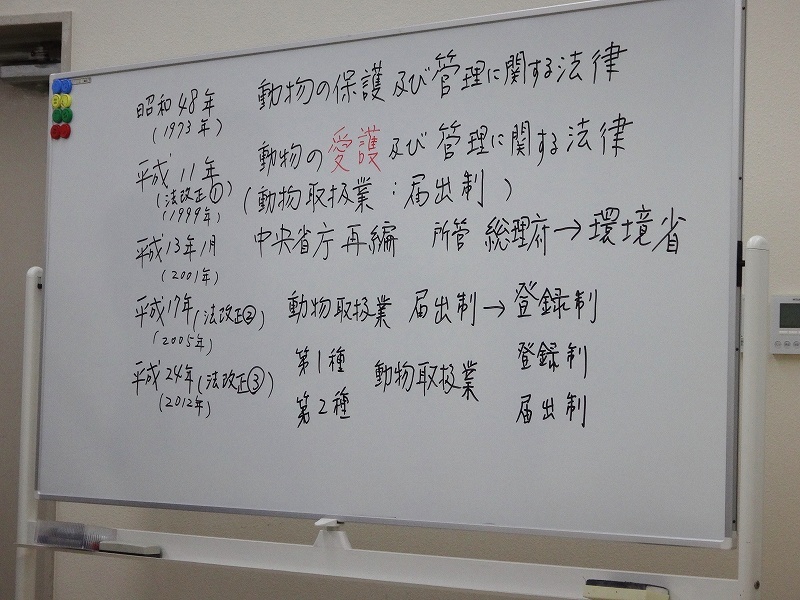 昭和48年 動物の保護及び管理に関する法律
(1973年)
平成11年 動物の愛護及び管理に関する法律
(法改正①) (動物取扱業:届出制)
(1999年)
平成13年1月 中央省庁再編 所管 総理府→環境省
(2001年)
平成17年(法改正②) 動物取扱業 届出制→登録制
(2005年)
平成24年(法改正③) 第1種 動物取扱業 登録制
(2012年) 第2種 届出制